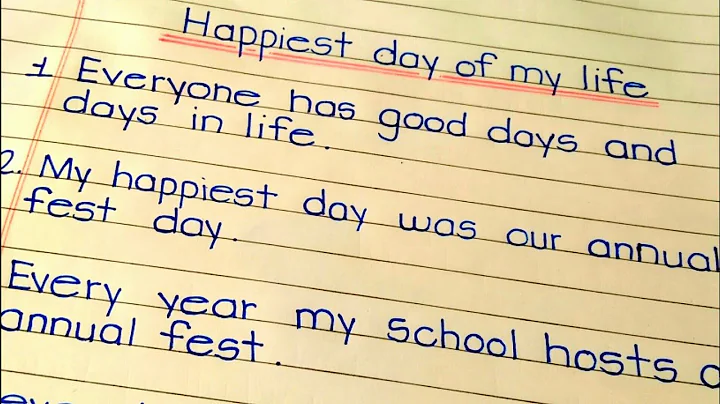 Happiest day of my life
1 Everyone has good days and
days in life.
2. My happiest day was our annual
fest day.
Every year my school hosts a
annual fest.